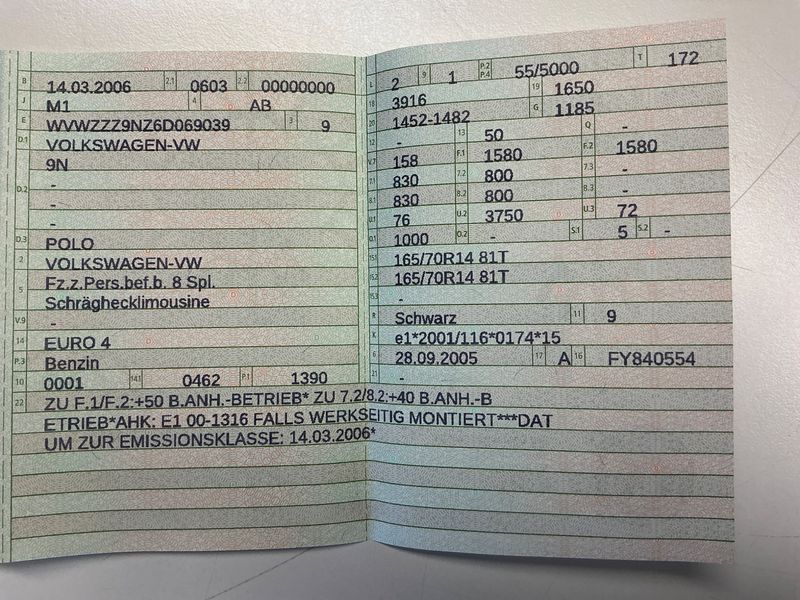 B 14.03.2006 2.1 0603 2.2 00000000
J M1 4 AB
E WVWZZZ9NZ6D069039 3 9
D.1 VOLKSWAGEN-VW
9N
D.2 -
-
-
D.3 POLO
2 VOLKSWAGEN-VW
5 Fz.z.Pers.bef.b. 8 Spl.
Schräghecklimousine
V.9 -
14 EURO 4
P.3 Benzin
10 0001 14.1 0462 P.1 1390
L 2 9 1 P.2 P.4 55/5000 T 172
18 3916 19 1650
20 1452-1482 G 1185
12 - 13 50 Q -
V.7 158 F.1 1580 F.2 1580
7.1 830 7.2 800 7.3 -
8.1 830 8.2 800 8.3 -
U.1 76 U.2 3750 U.3 72
O.1 1000 O.2 - S.1 5 S.2 -
15.1 165/70R14 81T
15.2 165/70R14 81T
15.3 -
R Schwarz 11 9
K e1*2001/116*0174*15
6 28.09.2005 17 A 16 FY840554
21 -
22 ZU F.1/F.2:+50 B.ANH.-BETRIEB* ZU 7.2/8.2:+40 B.ANH.-B
ETRIEB*AHK: E1 00-1316 FALLS WERKSEITIG MONTIERT***DAT
UM ZUR EMISSIONSKLASSE: 14.03.2006*